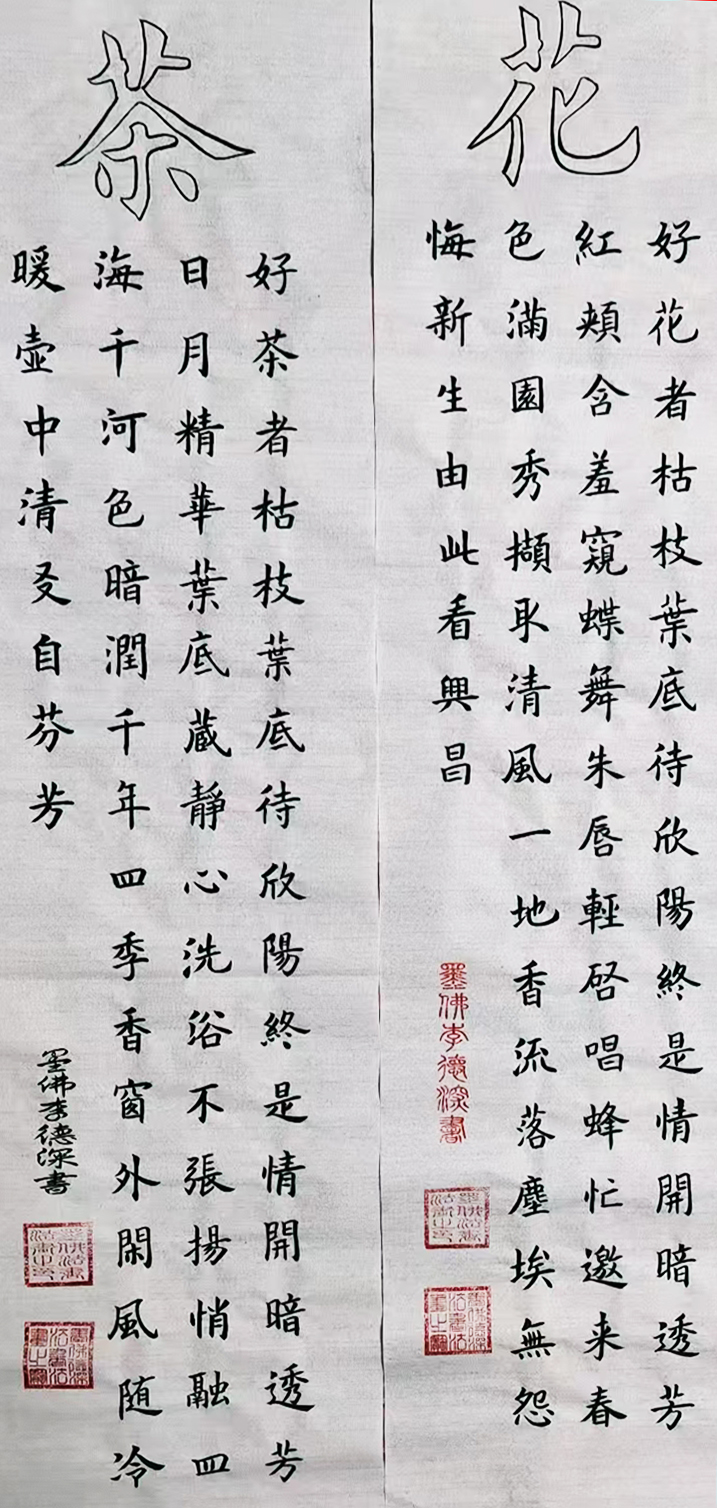 花
好花者枯枝葉底待欣陽終是情開暗透芳
紅頰含羞窺蝶舞朱唇輕啓唱蜂忙邀来春
色滿園秀擷取清風一地香流落塵埃無怨
悔新生由此看興昌
墨佛李德深書
茶
好茶者枯枝葉底待欣陽終是情開暗透芳
日月精華葉底蔵靜心洗浴不張揚悄融四
海千河色暗潤千年四季香窗外閑風随冷
暖壶中清友自芬芳
墨佛李德深書